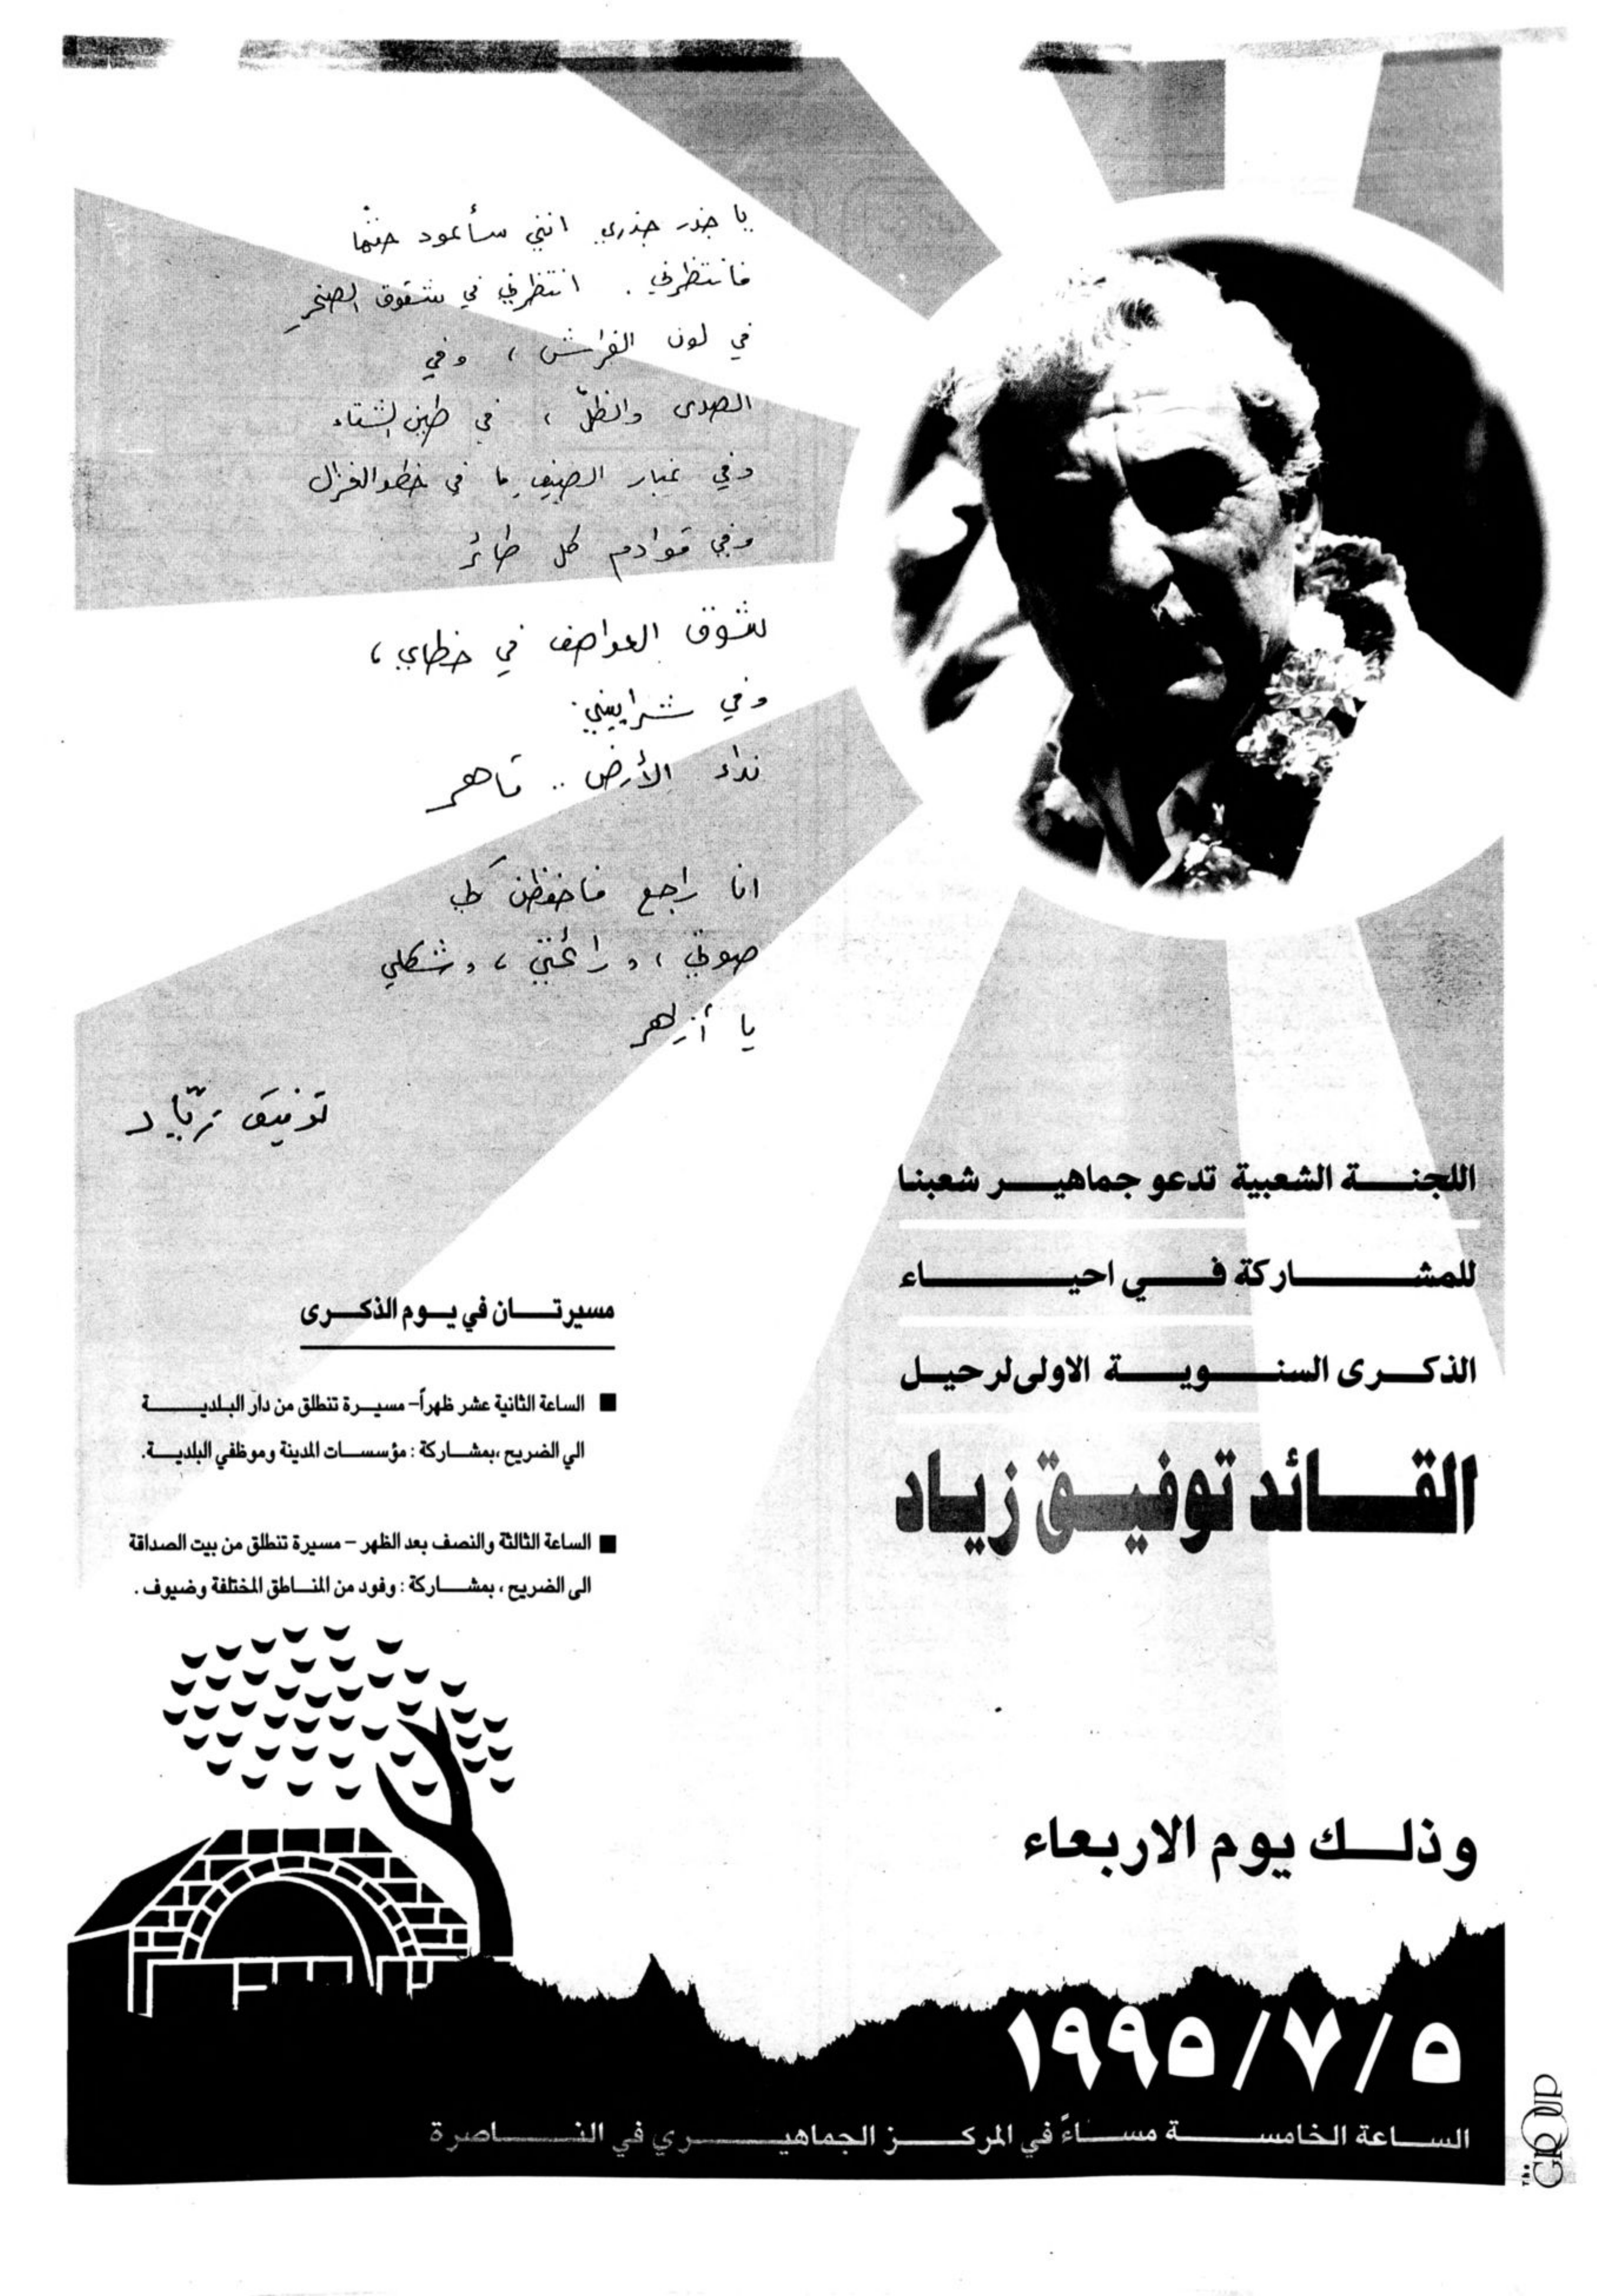 يا جذر جذري انني سأعود حتمًا
فانتظرني . انتظرني في شقوق الصخر
في لون الفراش ، وفي
الصدى والظلّ ، في طين الشتاء
وفي غبار الصيف في خطو الغزال
وفي قوادم كل طائر
شوق العواصف في خطاي ،
وفي شراييني
نداء الأرض .. قاهر
انا راجع فاحفظن لي
صوتي ، ورائحتي ، وشكلي
يا أزاهر
توفيق زيّاد
اللجنة الشعبية تدعو جماهير شعبنا
للمشاركة في احياء
الذكرى السنوية الاولى لرحيل
القائد توفيق زياد
مسيرتان في يوم الذكرى
■ الساعة الثانية عشر ظهراً – مسيرة تنطلق من دار البلدية
الى الضريح ،بمشاركة : مؤسسات المدينة وموظفي البلدية.
■ الساعة الثالثة والنصف بعد الظهر – مسيرة تنطلق من بيت الصداقة
الى الضريح ، بمشاركة : وفود من المناطق المختلفة وضيوف .
وذلك يوم الاربعاء
١٩٩٥/٧/٥
الساعة الخامسة مساءً في المركز الجماهيري في الناصرة
The GROUP